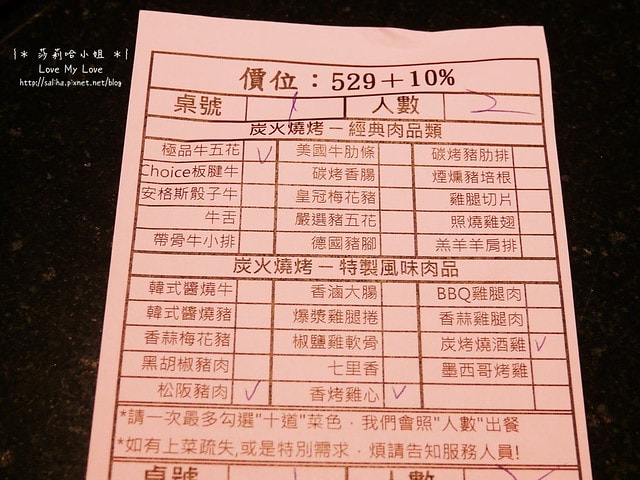 |* 莎莉哈小姐 *|
Love My Love
http://saliha.pixnet.net/blog
價位：529＋10%
桌號 1 人數 2
炭火燒烤－經典肉品類
極品牛五花 ✓ 美國牛肋條 碳烤豬肋排
Choice板腱牛 碳烤香腸 煙燻豬培根
安格斯骰子牛 皇冠梅花豬 雞腿切片
牛舌 嚴選豬五花 照燒雞翅
帶骨牛小排 德國豬腳 羔羊羊肩排
炭火燒烤－特製風味肉品
韓式醬燒牛 香滷大腸 BBQ雞腿肉
韓式醬燒豬 爆漿雞腿捲 香蒜雞腿肉
香蒜梅花豬 椒鹽雞軟骨 炭烤燒酒雞 ✓
黑胡椒豬肉 七里香 墨西哥烤雞
松阪豬肉 ✓ 香烤雞心 ✓
*請一次最多勾選"十道"菜色，我們會照"人數"出餐
*如有上菜疏失,或是特別需求，煩請告知服務人員!
桌號 人數